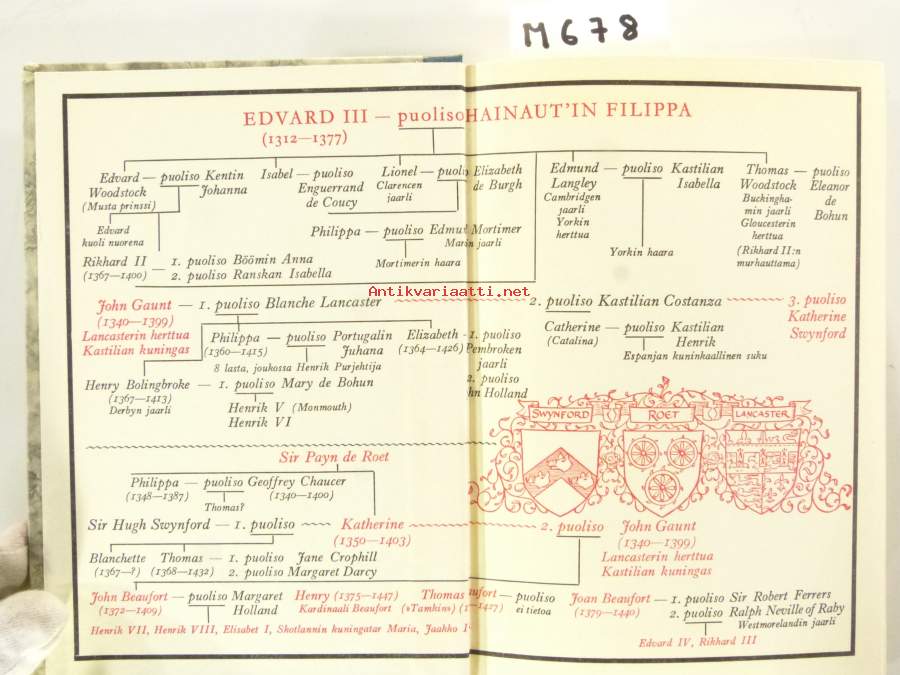 M678
EDVARD III — puoliso HAINAUT'IN FILIPPA
(1312—1377)
Edvard — puoliso Kentin
Woodstock Johanna
(Musta prinssi)
Isabel — puoliso
Enguerrand
de Coucy
Lionel — puol Elizabeth
Clarencen de Burgh
jaarli
Edmund — puoliso Kastilian
Langley Isabella
Cambridgen
jaarli
Yorkin
herttua
Thomas — puoliso
Woodstock Eleanor
Buckingha- de
min jaarli Bohun
Gloucesterin
herttua
(Rikhard II:n
murhauttama)
Edvard
kuoli nuorena
Philippa — puoliso Edmu Mortimer
jaarli
Mortimerin haara
Yorkin haara
Rikhard II — 1. puoliso Böömin Anna
(1367—1400) 2. puoliso Ranskan Isabella
Antikvariaatti.net
John Gaunt — 1. puoliso Blanche Lancaster 2. puoliso Kastilian Costanza 3. puoliso
(1340—1399) Katherine
Lancasterin herttua Swynford
Kastilian kuningas
Philippa — puoliso Portugalin
(1360—1415) Juhana
8 lasta, joukossa Henrik Purjehtija
Elizabeth - 1. puoliso
(1364—1426) Pembroken
jaarli
2. puoliso
hn Holland
Catherine — puoliso Kastilian
(Catalina) Henrik
Espanjan kuninkaallinen suku
Henry Bolingbroke — 1. puoliso Mary de Bohun
(1367—1413)
Derbyn jaarli
Henrik V (Monmouth)
Henrik VI
SWYNFORD ROET LANCASTER
Sir Payn de Roet
Philippa — puoliso Geoffrey Chaucer
(1348—1387) (1340—1400)
Thomas?
Sir Hugh Swynford — 1. puoliso Katherine 2. puoliso John Gaunt
(1350—1403) (1340—1399)
Lancasterin herttua
Kastilian kuningas
Blanchette Thomas — 1. puoliso Jane Crophill
(1367—?) (1368—1432) 2. puoliso Margaret Darcy
John Beaufort — puoliso Margaret
(1372—1409) Holland
Henry (1375—1447)
Kardinaali Beaufort
Thomas aufort — puoliso
(»Tamkin») (1 1427) ei tietoa
Joan Beaufort — 1. puoliso Sir Robert Ferrers
(1379—1440) 2. puoliso Ralph Neville of Raby
Westmorelandin jaarli
Henrik VII, Henrik VIII, Elisabet I, Skotlannin kuningatar Maria, Jaakko I
Edvard IV, Rikhard III